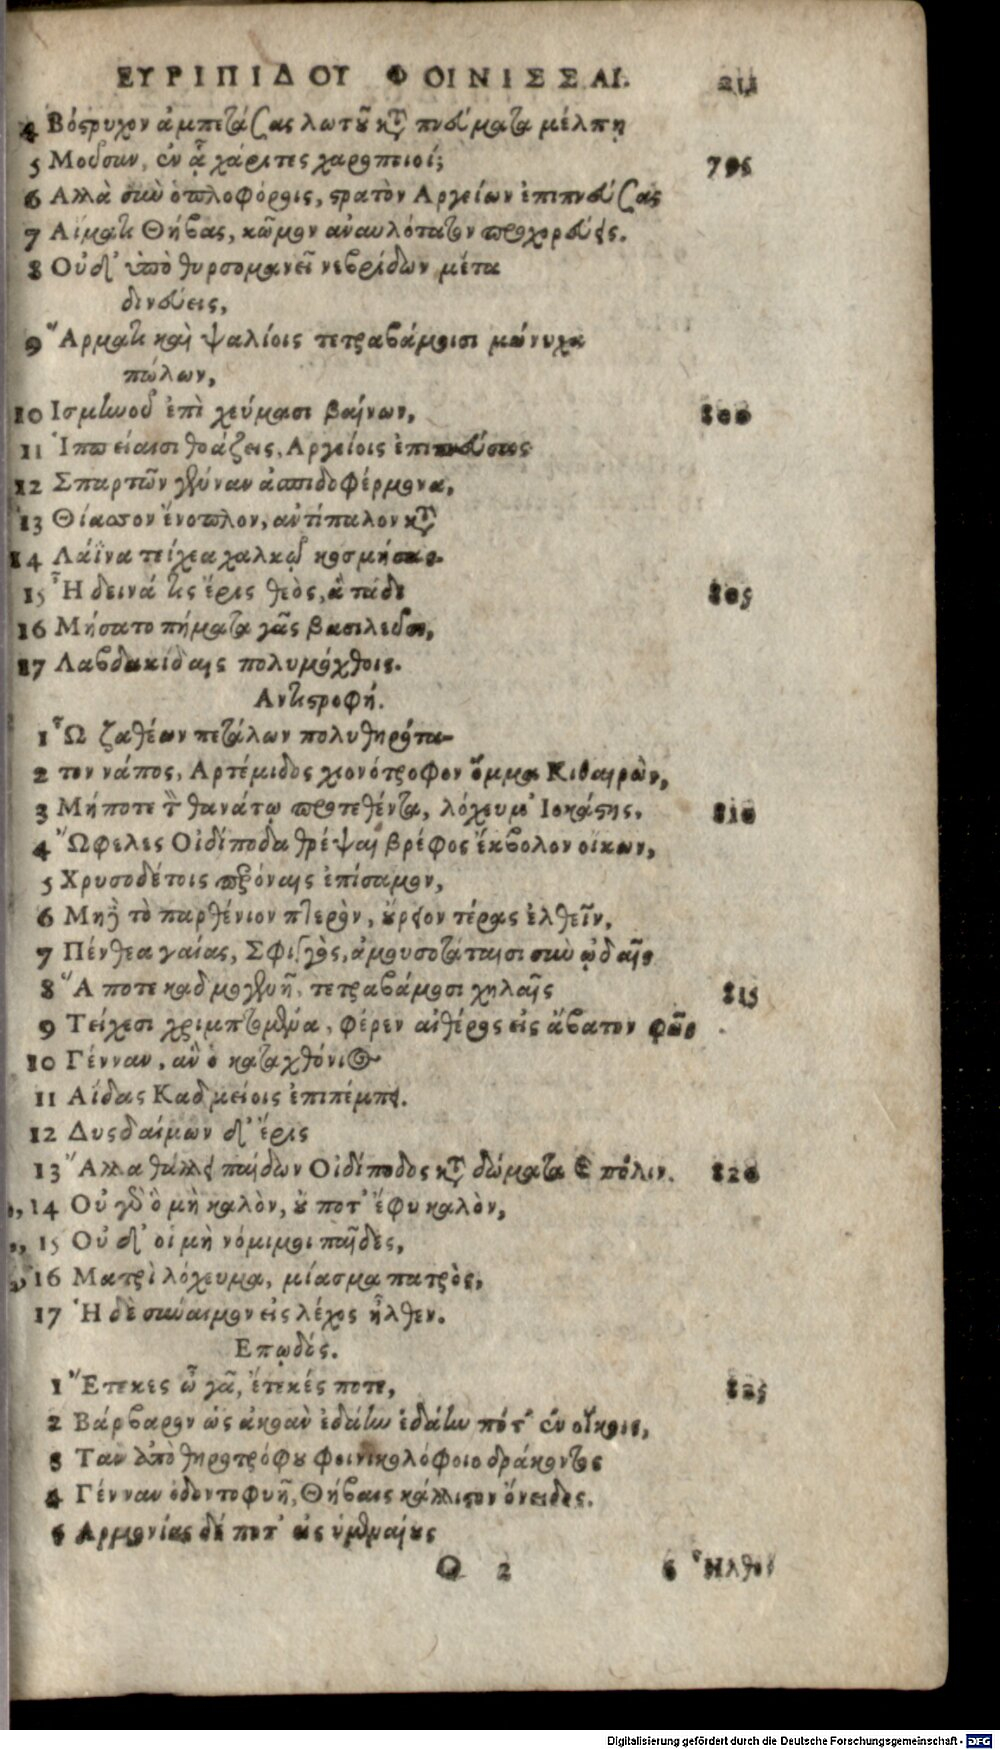 ΕΥΡΙΠΙΔΟΥ ΦΟΙΝΙΣΣΑΙ. 211
4 Βόστρυχον ἀμπετάσας λωτοῦ κτ πνεύματα μέλπῃ
5 Μοῦσαν, ἐν ᾇ χάριτες χοροποιοί; 795
6 Αλλὰ σὺν ὁπλοφόροις, στρατὸν Αργείων ἐπιπνεύσας
7 Αἵματι Θήβας, κῶμον ἀναυλότατον προχορεύεις.
8 Οὐδ' ὑπὸ θυρσομανεῖ νεβρίδων μέτα
δινεύεις,
9 Ἅρματι καὶ ψαλίοις τετραβάμοισι μώνυχα
πώλων,
10 Ισμηνοῦ ἐπὶ χεύμασι βαίνων, 800
11 Ἱππείαισι θοάζεις, Αργείοις ἐπιπνεύσας
12 Σπαρτῶν γένναν ἀσπιδοφέρμονα,
13 Θίασον ἔνοπλον, ἀντίπαλον κτ
14 Λάϊνα τείχεα χαλκῷ κοσμήσας.
15 Ἦ δεινά τις ἔρις θεὸς, ἃ τάδε 805
16 Μήσατο πήματα γᾶς βασιλεῦσι,
17 Λαβδακίδαις πολυμόχθοις.
Αντιστροφή.
1 Ὦ ζαθέων πετάλων πολυθηρότα-
2 τον νάπος, Αρτέμιδος χιονότροφον ὄμμα Κιθαιρὼν,
3 Μήποτε τὸν θανάτῳ προτεθέντα, λόχευμ' Ιοκάστης, 810
4 Ὤφελες Οἰδίποδα θρέψαι βρέφος ἔκβολον οἴκων,
5 Χρυσοδέτοις περόναις ἐπίσαμον,
6 Μηδὲ τὸ παρθένιον πτερὸν, οὔρειον τέρας ἐλθεῖν,
7 Πένθεα γαίας, Σφιγγὸς, ἀμουσοτάταισι σὺν ᾠδαῖς
8 Ἅ ποτε καδμογενῆ, τετραβάμοσι χηλαῖς 815
9 Τείχεσι χριμπτομένα, φέρεν αἰθέρος εἰς ἄβατον φῶς
10 Γένναν, ἂν ὁ καταχθόνιος
11 Αίδας Καδμείοις ἐπιπέμπει.
12 Δυσδαίμων δ' ἔρις
13 Ἄλλα θάλλει παίδων Οἰδίποδος κτ δώματα καὶ πόλιν. 820
,, 14 Οὐ γὰρ ὃ μὴ καλὸν, οὔ ποτ' ἔφυ καλὸν,
,, 15 Οὐδ' οἱ μὴ νόμιμοι παῖδες,
,, 16 Ματρὶ λόχευμα, μίασμα πατρὸς,
17 Ἡ δὲ σύναιμον εἰς λέχος ἦλθεν.
Επῳδός.
1 Ἔτεκες ὦ γᾶ, ἔτεκές ποτε, 825
2 Βάρβαρον ὡς ἀκοὰν ἐδάην ἐδάην πότ' ἐν οἴκοις,
3 Τὰν ἀπὸ θηροτρόφου φοινικολόφοιο δράκοντος
4 Γένναν ὀδοντοφυῆ, Θήβαις κάλλιστον ὄνειδος.
5 Αρμονίας δέ ποτ' εἰς ὑμεναίους
Q 2 6 Ἤλθον
Digitalisierung gefördert durch die Deutsche Forschungsgemeinschaft - DFG